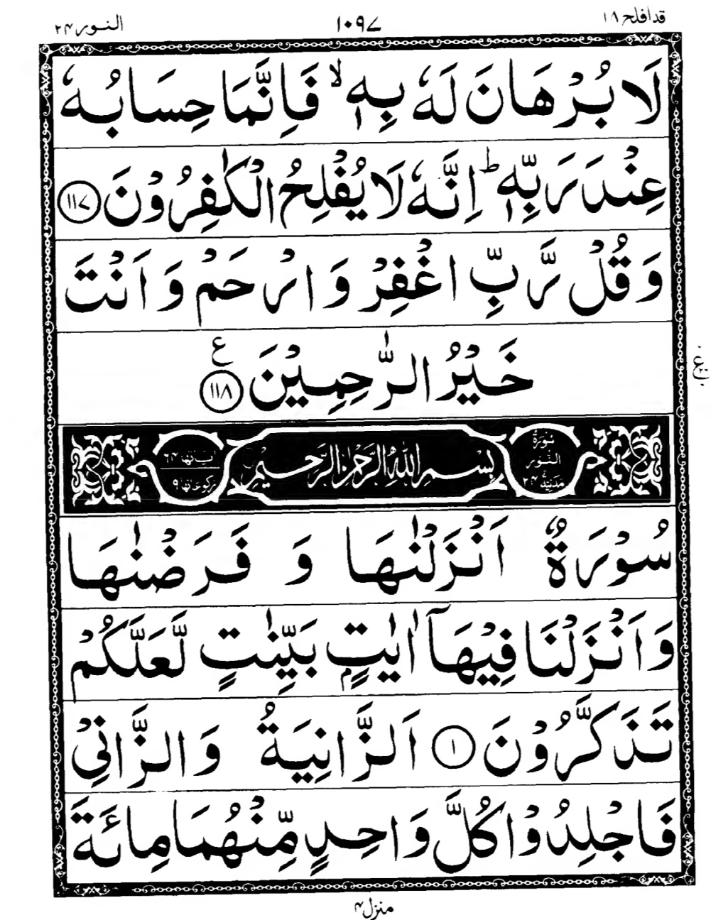 قدافلح ۱۸
۱۰۹۷
النور ۲۴
لَا بُرْهَانَ لَهٗ بِهٖ ۙ فَاِنَّمَا حِسَابُهٗ
عِنْدَ رَبِّهٖ ؕ اِنَّهٗ لَا يُفْلِحُ الْكٰفِرُوْنَ ۱۱۷
وَ قُلْ رَّبِّ اغْفِرْ وَ ارْحَمْ وَ اَنْتَ
خَيْرُ الرّٰحِمِيْنَ ۱۱۸ ع
سُوْرَةُ النُّوْر مَدَنِيَّة ۲۴
بسم الله الرحمن الرحيم
اٰيَاتُهَا ۶۴
رُكُوْعَاتُهَا ۹
سُوْرَةٌ اَنْزَلْنٰهَا وَ فَرَضْنٰهَا
وَ اَنْزَلْنَا فِيْهَاۤ اٰيٰتٍۭ بَيِّنٰتٍ لَّعَلَّكُمْ
تَذَكَّرُوْنَ ۱ اَلزَّانِيَةُ وَ الزَّانِيْ
فَاجْلِدُوْا كُلَّ وَاحِدٍ مِّنْهُمَا مِائَةَ
منزل ۴